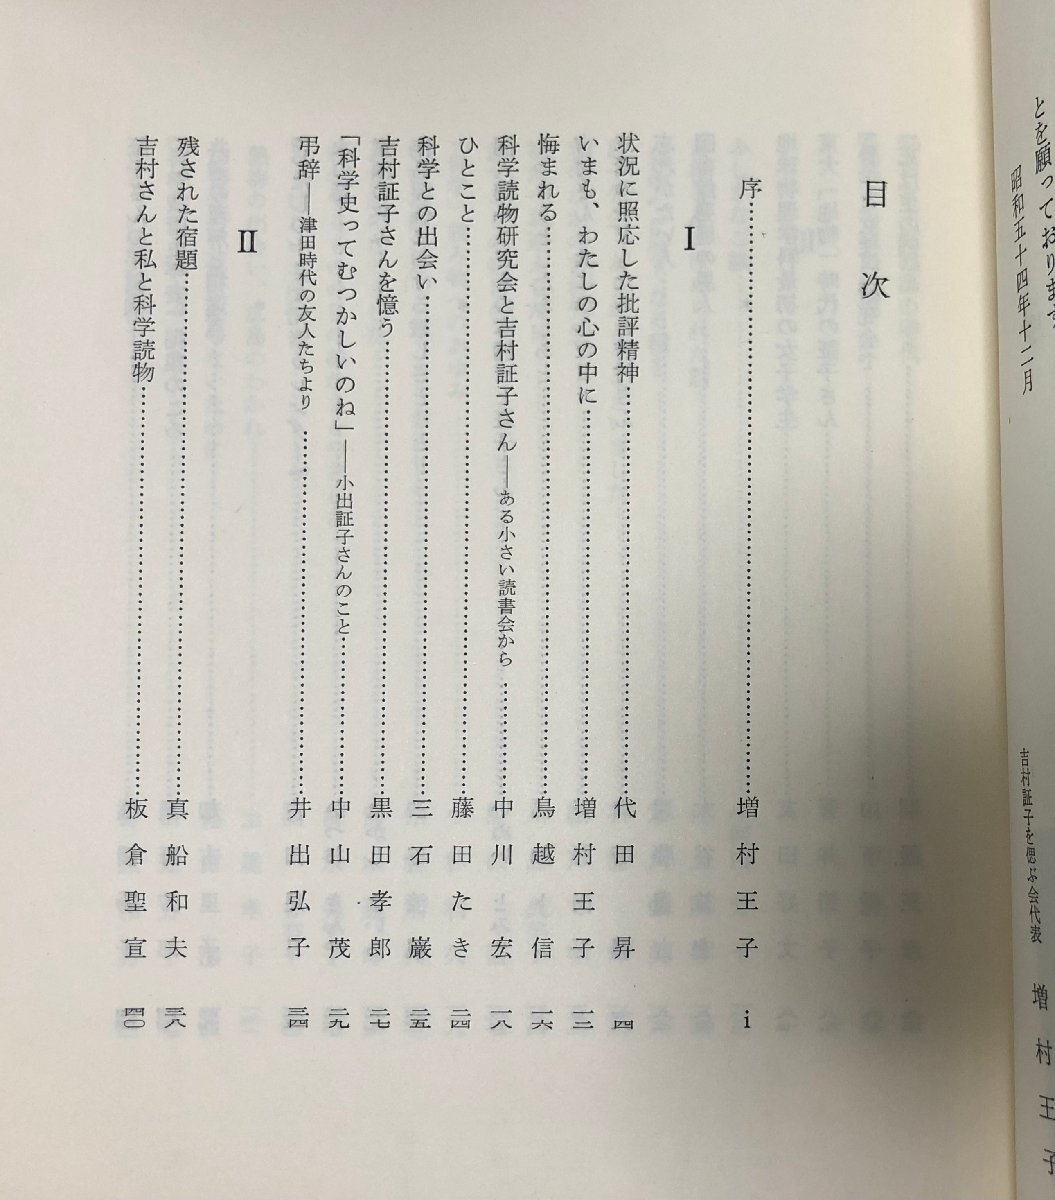 とを願っております。
昭和五十四年十二月
吉村証子を偲ぶ会代表 増村王子
目次
序……増村王子 i
I
状況に照応した批評精神……代田昇 四
いまも、わたしの心の中に……増村王子 一三
悔まれる……鳥越信 一六
科学読物研究会と吉村証子さん——ある小さい読書会から……中川宏 一八
ひとこと……藤田たき 二四
科学との出会い……三石巌 二五
吉村証子さんを憶う……黒田孝郎 二七
「科学史ってむつかしいのね」——小出証子さんのこと……中山茂 二九
弔辞——津田時代の友人たちより……井出弘子 三四
II
残された宿題……真船和夫 三八
吉村さんと私と科学読物……板倉聖宣 四〇